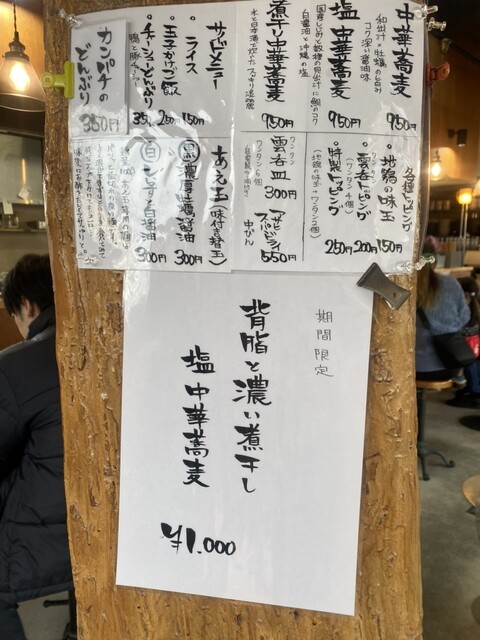 中華蕎麦
和出汁×牡蠣の旨み
コク深い醤油味
950円
塩中華蕎麦
白醤油と沖縄の塩
950円
煮干し中華蕎麦
950円
サイドメニュー
・ライス
150円
・玉子かけご飯
250円
・チャーシューどんぶり
鶏と豚チャーシュー
350円
カンパチの
どんぶり
350円
各種トッピング
・地鶏の味玉
150円
・雲呑トッピング
(ワンタン4個)
200円
・特製トッピング
(地鶏の味玉・ワンタン2個)
250円
雲呑皿
ワンタン6個
300円
中びん
550円
あえ玉(味付き替玉)
濃厚牡蠣醤油
300円
白
煮干と白醤油
300円
期間限定
背脂と濃い煮干し
塩中華蕎麦
¥1,000